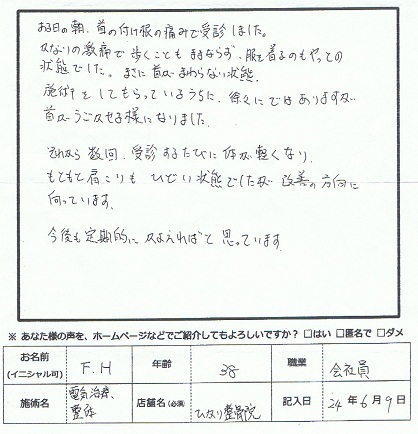 ある日の朝、首の付け根の痛みで受診しました。
かなりの激痛で歩くこともままならず、服を着るのもやっての
状態でした。まさに首がまわらない状態。
施術をしてもらっているうちに、徐々にではありますが
首がうごかせる様になりました。
それから数回、受診するたびに体が軽くなり、
もともと肩こりもひどい状態でしたが改善の方向に
向っています。
今後も定期的にかよえればと思っています。
※ あなた様の声を、ホームページなどでご紹介してもよろしいですか? □はい □匿名で □ダメ
お名前(イニシャル可) F.H 年齢 38 職業 会社員
施術名 電気治療、整体 店舗名(必須) ひなり整骨院 記入日 24年6月9日